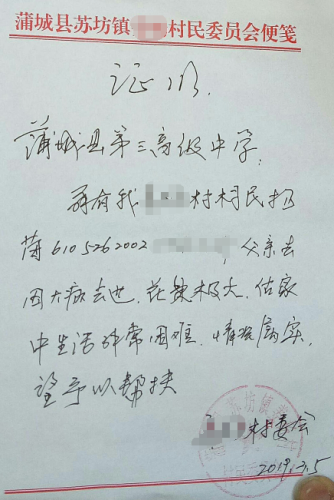 蒲城县苏坊镇 村民委员会便笺
证明
蒲城县第三高级中学,
兹有我 村村民杨
茼6105262002 , 父亲去
因大病去世, 花费极大, 估家
中生活非常困难, 情况属实,
望予以帮扶
村委会
2019.3.5